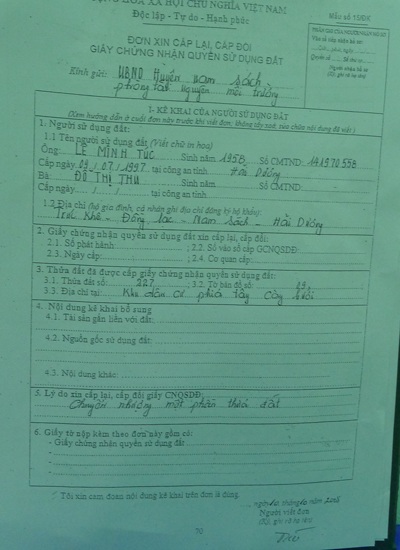 CỘNG HÒA XÃ HỘI CHỦ NGHĨA VIỆT NAM
Độc lập - Tự do - Hạnh phúc
Mẫu số 15/ĐK
ĐƠN XIN CẤP LẠI, CẤP ĐỔI
GIẤY CHỨNG NHẬN QUYỀN SỬ DỤNG ĐẤT
Kính gửi: UBND Huyện Nam Sách
phòng tài nguyên môi trường
I- KÊ KHAI CỦA NGƯỜI SỬ DỤNG ĐẤT
(Xem hướng dẫn ở cuối đơn này trước khi viết đơn; không tẩy xoá, sửa chữa nội dung đã viết)
1. Người sử dụng đất:
1.1 Tên người sử dụng đất (Viết chữ in hoa)
Ông: LÊ MINH TỤC Sinh năm 1958 Số CMTND: 141970558
Cấp ngày 09/07/1997 tại công an tỉnh Hải Dương
Bà: ĐỖ THỊ THU Sinh năm Số CMTND
Cấp ngày / / tại công an tỉnh
1.2 Địa chỉ (hộ gia đình, cá nhân ghi địa chỉ đăng ký hộ khẩu):
Trúc Khê - Đồng Lạc - Nam Sách - Hải Dương
2. Giấy chứng nhận quyền sử dụng đất xin cấp lại, cấp đổi:
2.1. Số phát hành: 2.2. Số vào sổ cấp GCNQSDĐ:
2.3. Ngày cấp: 2.4. Cơ quan cấp:
3. Thửa đất đã được cấp giấy chứng nhận quyền sử dụng đất:
3.1. Thửa đất số: 227 3.2. Tờ bản đồ số:
3.3. Địa chỉ tại: Khu dân cư phía tây
4. Nội dung kê khai bổ sung
4.1. Tài sản gắn liền với đất:
4.2. Nguồn gốc sử dụng đất:
4.3. Nội dung khác:
5. Lý do xin cấp lại, cấp đổi giấy CNQSDĐ:
Chuyển nhượng một phần thửa đất
6. Giấy tờ nộp kèm theo đơn này gồm có:
- Giấy chứng nhận quyền sử dụng đất
-
-
-
Tôi xin cam đoan nội dung kê khai trên đơn là đúng.
ngày tháng năm
Người viết đơn
(Ký, ghi rõ họ tên)
70